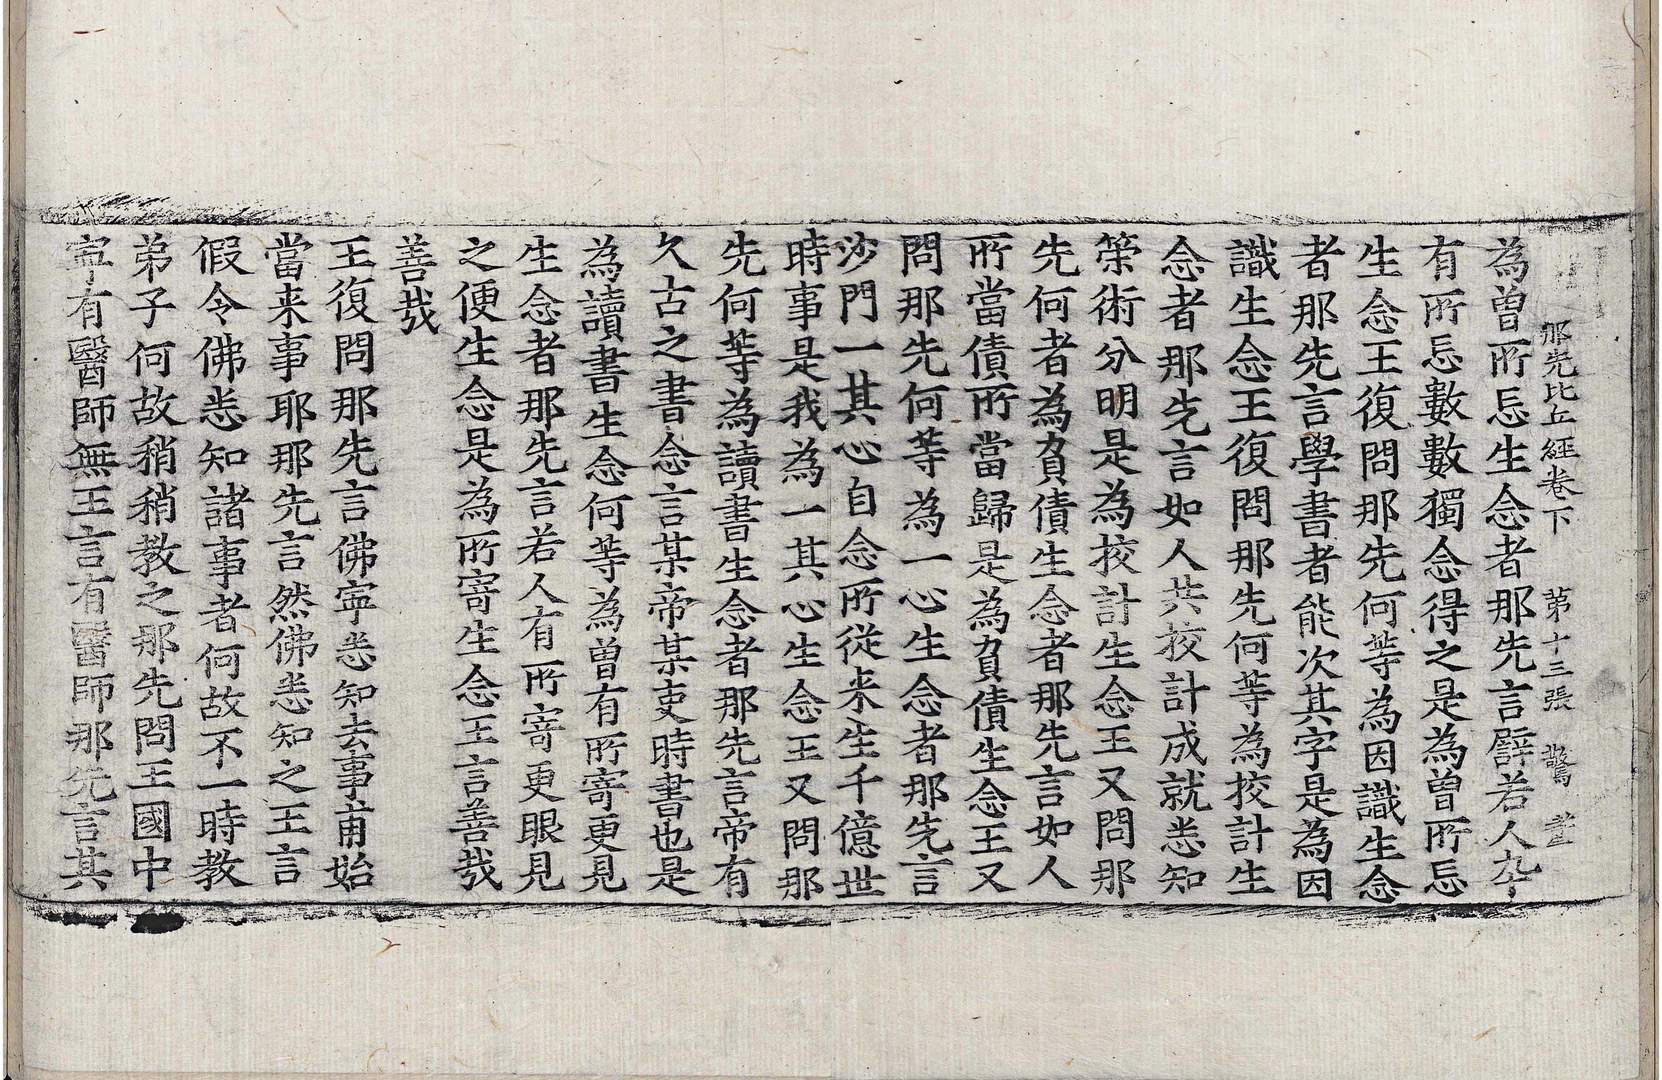 那先比丘經卷下 第十三張 驚
為曾所忘生念者那先言辟若人卒
有所忘數數獨念得之是為曾所忘
生念王復問那先何等為因識生念
者那先言學書者能次其字是為因
識生念王復問那先何等為挍計生
念者那先言如人共挍計成就悉知
筞術分明是為挍計生念王又問那
先何者為負債生念者那先言如人
所當債所當歸是為負債生念王又
問那先何等為一心生念者那先言
沙門一其心自念所從来生千億世
時事是我為一其心生念王又問那
先何等為讀書生念者那先言帝有
久古之書念言某帝某吏時書也是
為讀書生念何等為曾有所寄更見
生念者那先言若人有所寄更眼見
之便生念是為所寄生念王言善哉
善哉
王復問那先言佛寧悉知去事甫始
當来事耶那先言然佛悉知之王言
假令佛悉知諸事者何故不一時教
弟子何故稍稍教之那先問王國中
寧有醫師無王言有醫師那先言其